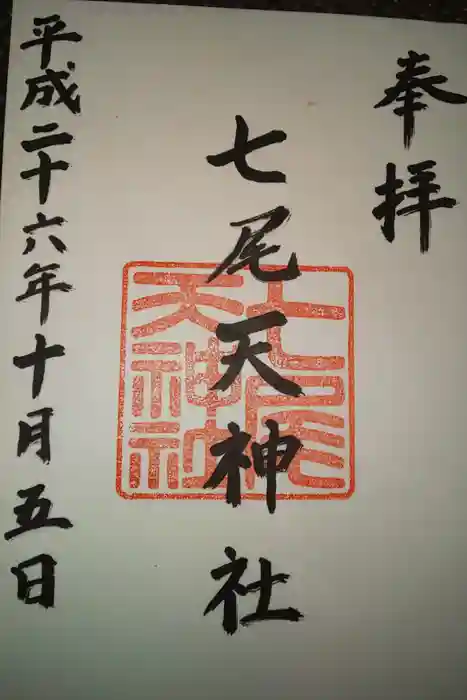 奉拝
七尾天神社
平成二十六年十月五日
七尾
天神社